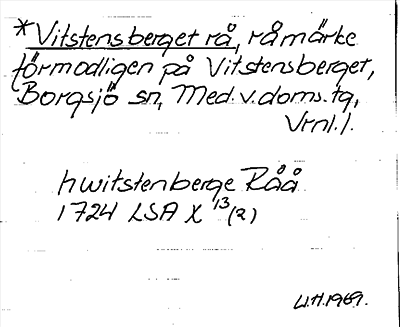 *Vitstensberget rå, råmärke
förmodligen på Vitstensberget,
Borgsjö sn, Med.v.doms.tg,
Vrnl.l.
hwitstenberge Råå
1724 LSA X 13(2)
U.H. 1969.